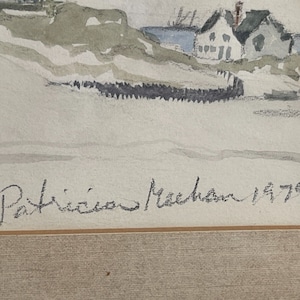 Patricia Meehan 1979